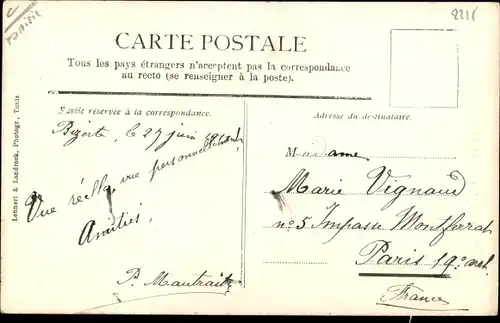 Tunisie
2218
CARTE POSTALE
Tous les pays étrangers n'acceptent pas la correspondance
au recto (se renseigner à la poste).
Partie réservée à la correspondance.
Adresse du destinataire.
Bizerte, le 27 juin
Vue réelle, vue personnellement,
Amitiés,
P. Mautrait
Madame
Marie Vignaud
n° 5 Impasse Montferrat
Paris 19e arrt
France
Lehnert & Landrock, Photogr., Tunis